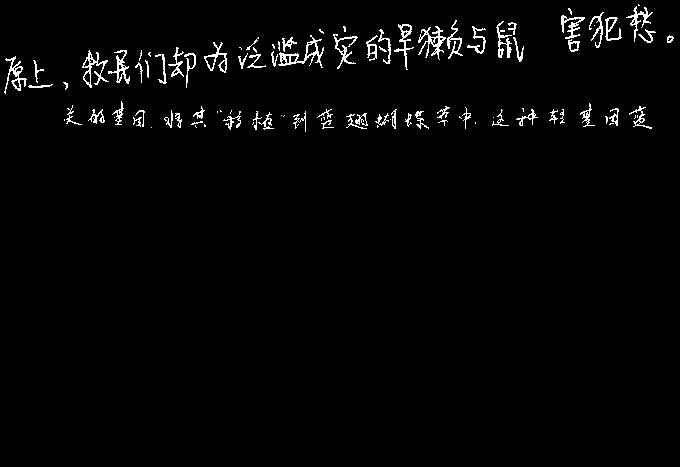 原上，牧民们却为泛滥成灾的旱獭与鼠 害犯愁。
关的基因.将其"移植"到蓝翅蝴蝶草中.这种转基因蓝